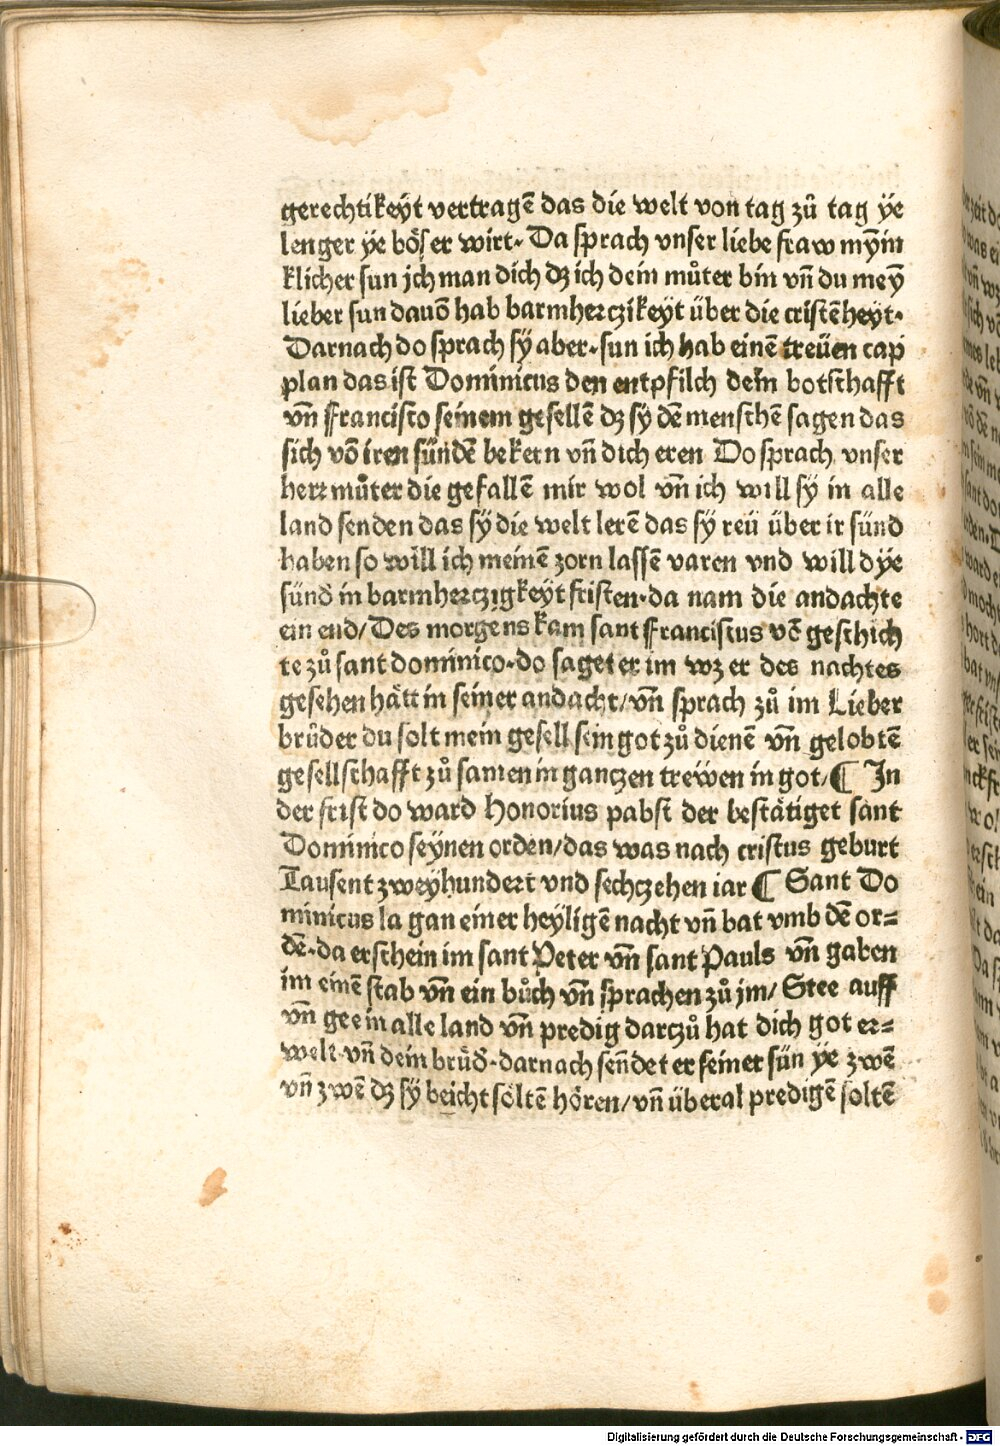 gerechtikeÿt vertragē das die welt von tag zů tag ÿe
lenger ÿe böser wirt. Da sprach vnser liebe fraw mÿin
klicher sun jch man dich dz ich dein můter bin vn̄ du meȳ
lieber sun dauō hab barmherczikeÿt über die cristēheÿt.
Darnach do sprach sÿ aber. sun ich hab einē treüen cap
plan das ist Dominicus den entpfilch dein botschafft
vn̄ francisco seinem gesellē dz sÿ dē menschē sagen das
sich vō iren sündē bekern vn̄ dich eren Do sprach vnser
herr můter die gefallē mir wol vn̄ ich will sÿ in alle
land senden das sÿ die welt lerē das sÿ reü über ir sünd
haben so will ich meinē zorn lassē varen vnd will dÿe
sünd in barmherczigkeÿt fristen. da nam die andachte
ein end/ Des morgens kam sant franciscus vō geschich
te zů sant dominico. do saget er im wz er des nachtes
gesehen hätt in seiner andacht/ vn̄ sprach zů im Lieber
brůder du solt mein gesell sein got zů dienē vn̄ gelobtē
gesellschafft zů samen in ganczen treẅen in got/ ¶ In
der frist do ward Honorius pabst der bestätiget sant
Dominico seÿnen orden/ das was nach cristus geburt
Tausent zweÿhundert vnd sechczehen iar ¶ Sant Do
minicus lag an einer heÿligē nacht vn̄ bat vmb dē or=
dē. da erschein im sant Peter vn̄ sant Pauls vn̄ gaben
im einē stab vn̄ ein bůch vn̄ sprachen zů jm/ Stee auff
vn̄ gee in alle land vn̄ predig darczů hat dich got er=
welt vn̄ dein brüd̄. darnach sendet er seiner sün ÿe zwē
vn̄ zwē dz sÿ beicht söltē hören/ vn̄ überal predigē soltē
Digitalisierung gefördert durch die Deutsche Forschungsgemeinschaft - DFG